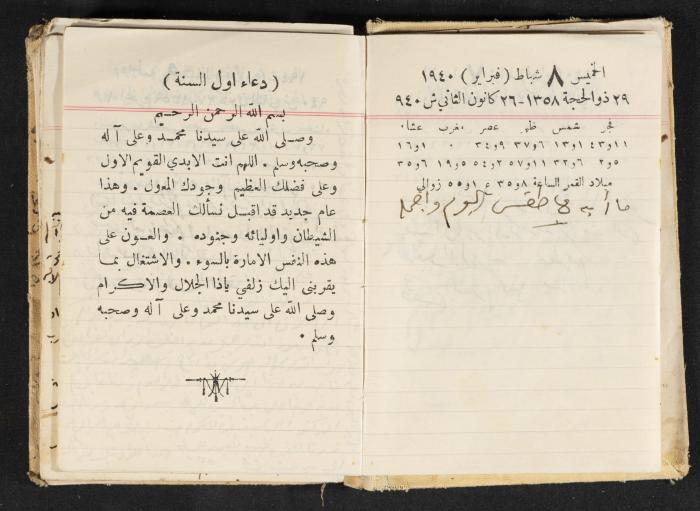 الخميس ٨ شباط (فبراير) ١٩٤٠
٢٩ ذو الحجة ١٣٥٨-٢٦ كانون الثاني ش ٩٤٠
فجر شمس ظهر عصر مغرب عشا٠
١١و٤٣ ١و١٣ ٦و٣٧ ٩و٣٤ ٠ ١و١٦
٥و٢ ٦و٣٢ ١١و٥٧ ٢و٥٤ ٥و١٩ ٦و٣٥
ميلاد القمر الساعة ٨و٣٥ ع ١و٥٥ زوالي
طقس اليوم واجمله
(دعاء اول السنة)
بسم الله الرحمن الرحيم
وصلى الله على سيدنا محمد وعلى آله
وصحبه وسلم . اللهم انت الابدي القويم الاول
وعلى فضلك العظيم وجودك المعول . وهذا
عام جديد قد اقبل نسألك العصمة فيه من
الشيطان واوليائه وجنوده . والعون على
هذه النفس الامارة بالسوء . والاشتغال بما
يقربني اليك زلفي ياذا الجلال والاكرام
وصلى الله على سيدنا محمد وعلى آله وصحبه
وسلم .